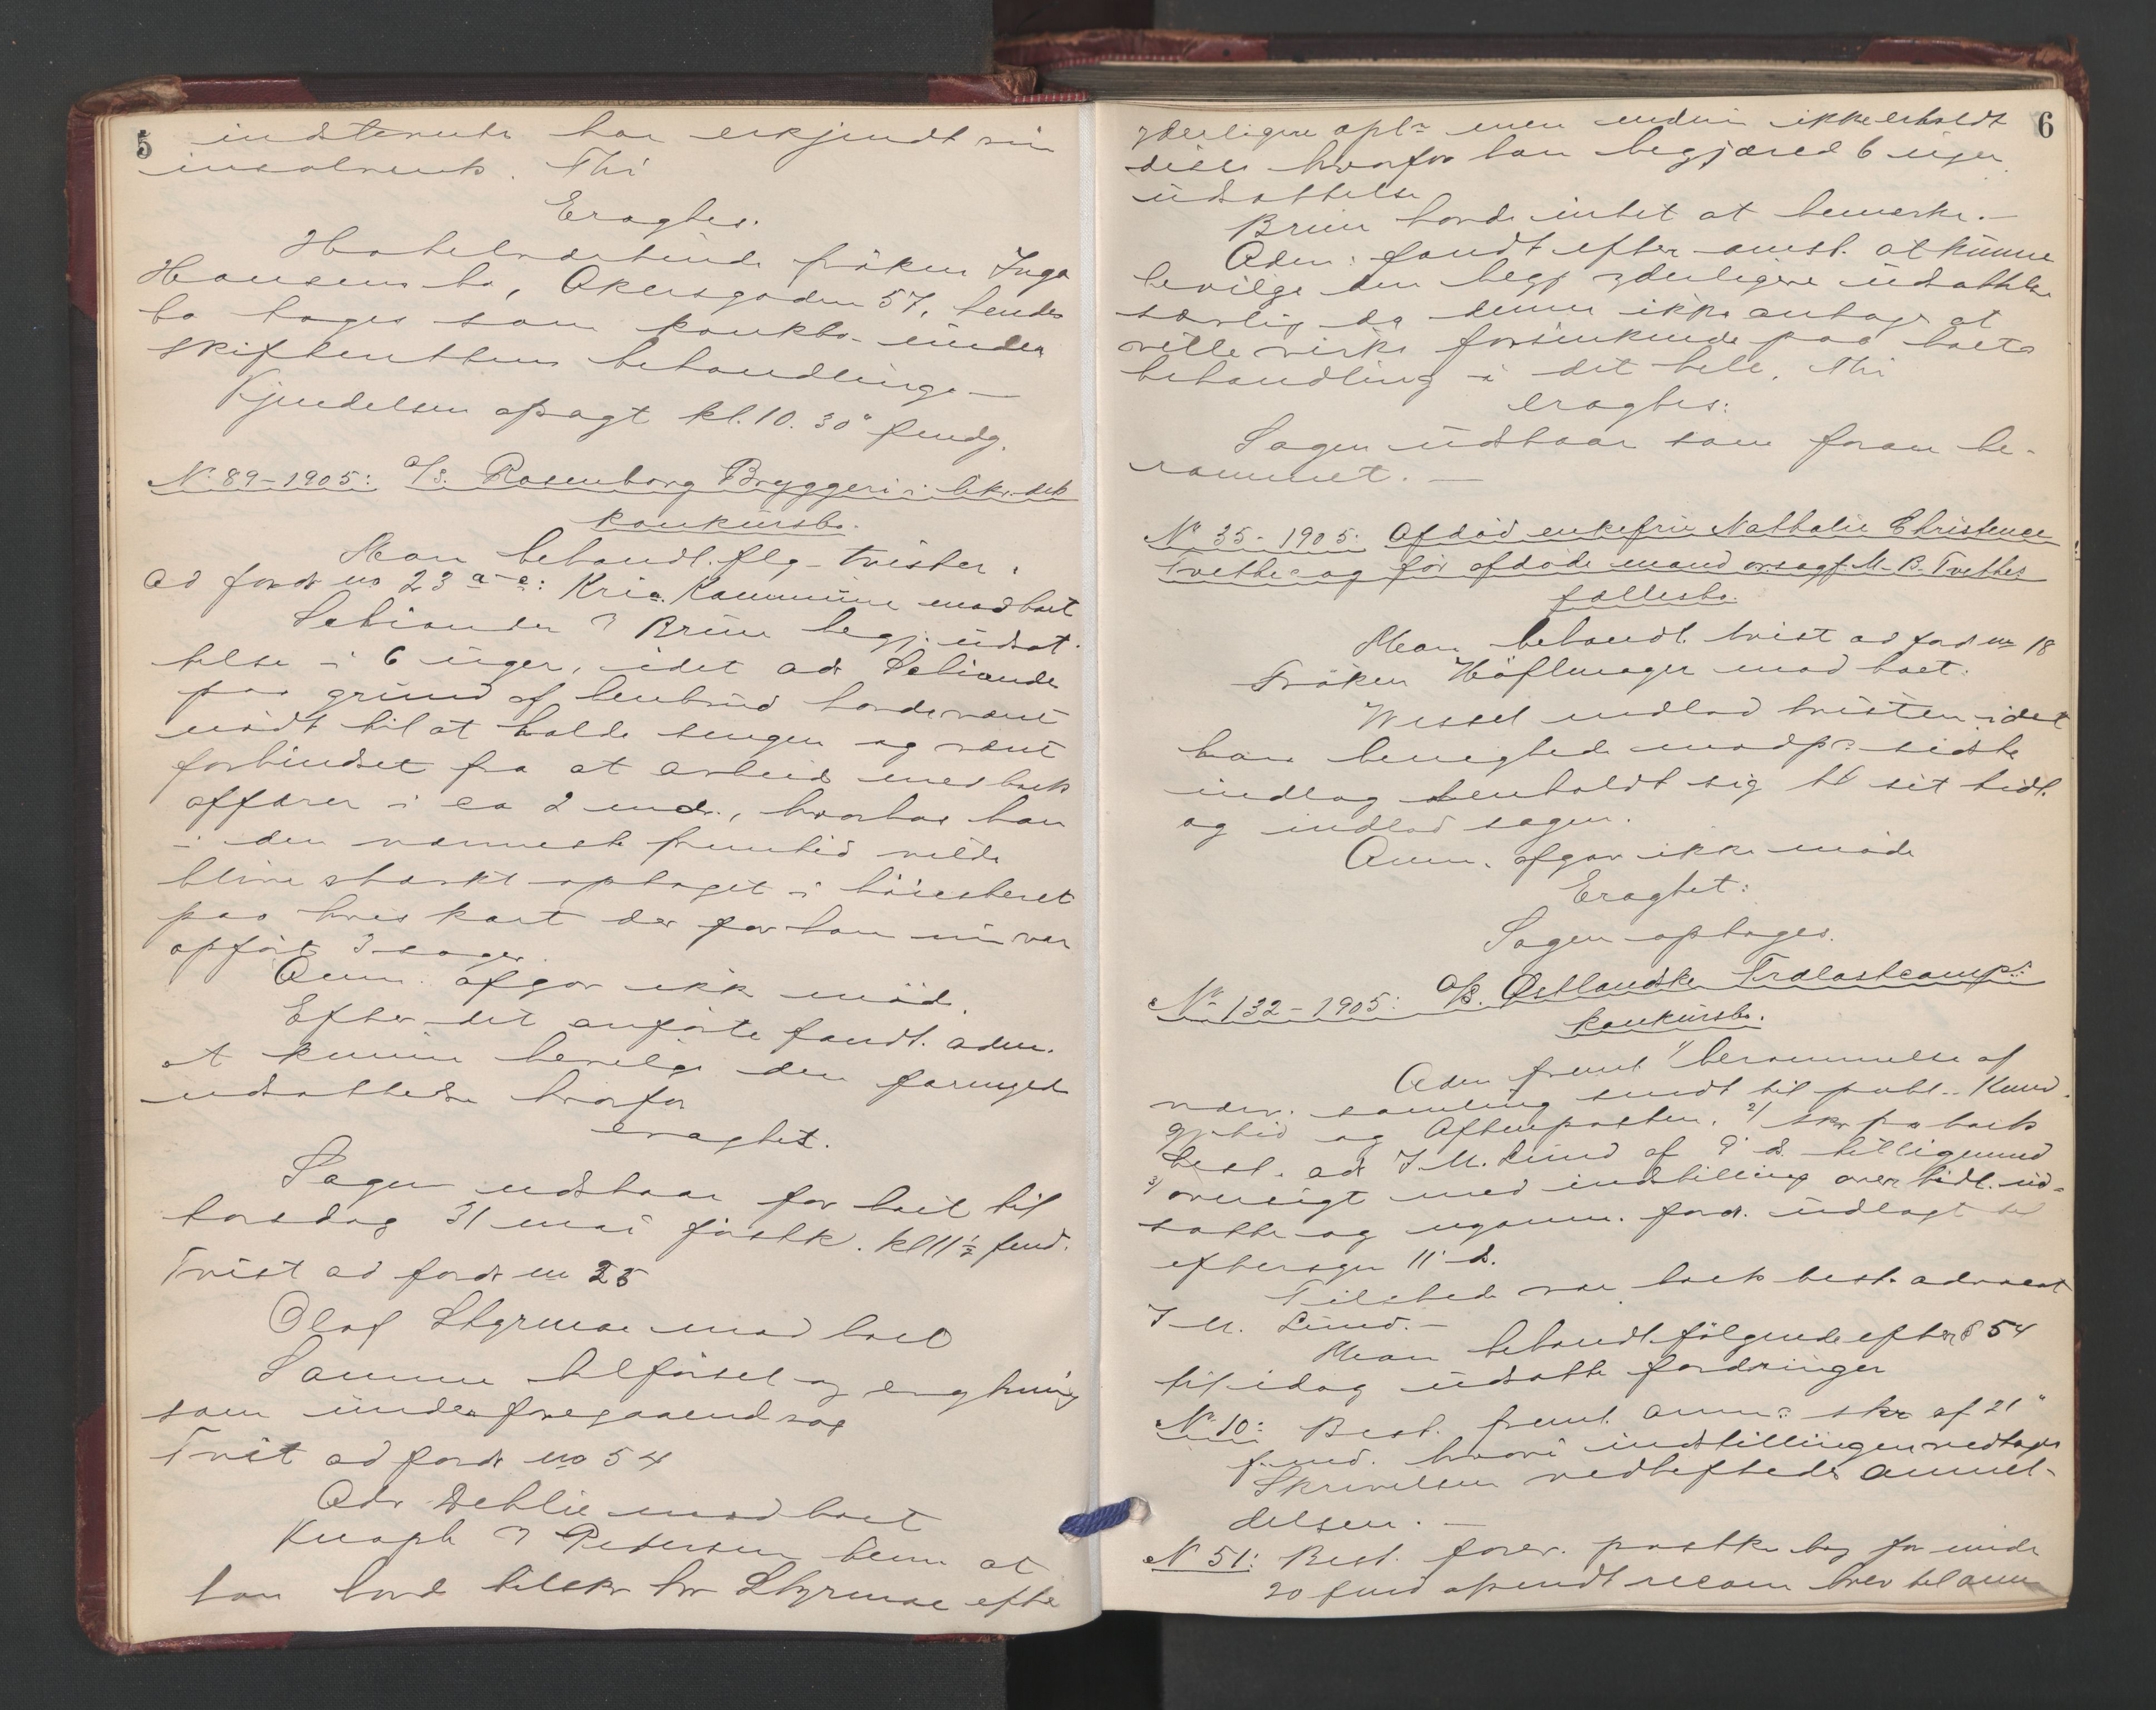 5
indstevnte har erkjendt sin
insolvents. Thi
Eragtes:
Hotelværtinde frøken Inga
Hansens bo, Akersgaden 57, hendes
bo tages som konkbo under
skifterettens behandling.—
Kjendelsen opsagt kl. 10.30" fmdg.
No 89-1905: A/S. Rosenborg Bryggeri i likv. dets
konkursbo.
Man behandl. flg. tvister.
Ad fordr no 23 a-e: Kria. Kommune mod boet
ved Brun begj. udsæt-
telse i 6 uger, idet adv
paa grund af benbrud havde været
nødt til at holde sengen og været
forhindret fra at arbeide med boets
affærer i ca 2 mdr., hvorhos han
i den nærmeste fremtid vilde
blive stærkt optaget i høiesteret
paa hvis kart der for ham nu var
opført 3 sager.
Anm. afgav ikke møde.
Efter det anførte fandt adm.
at kunne bevilge den forlangte
udsættelse hvorfor
eragtet.
Sagen udstaar for boet til
torsdag 31 mai førstk. kl 11½ fmd.
Tvist ad fordr no 25
Olaf Styrmoe mod boet
Samme tilførsel og eragtning
som under foregaaende sag
Tvist ad fordr no 54
Adv Dehlie mod boet
Knaph ved Pedersen bem at
han havde tilskr hr Styrmoe efter
6
yderligere opl. men endnu ikke erholdt
disse hvorfor han begjæred 6 uger
udsættelse
Brun havde intet at bemerke.—
Adm. fandt efter omst. at kunne
bevilge den begj yderligere udsættelse
særlig da denne ikke antages at
ville virke forsinkende paa boets
behandling i det hele. Thi
eragtes:
Sagen udstaar som foran be-
rammet.—
No 35-1905: Afdød enkefru Nathalie Christence
Tvethes og før afdøde mand ovsagf. M. B. Tvethes
fællesbo.
Man behandl. tvist ad fordr no 18
Frøken Höflmayer mod boet.
Wessel indlod tvisten idet
han benegtede modp. sidste
indlæg henholdt sig til sit tidl.
og indlod sagen.
Anm. afgav ikke møde
Eragtet:
Sagen optages.
No 132-1905: A/S. Østlandske Trælastcomp.s
konkursbo.
Adm freml. 1/ berammelse af
nærv. samling sendt til publ. i Kund-
gj.tid og Aftenposten, 2/ skr fra boets
best. adv J.M. Lund af 9' ds. tilligemed
3/ oversigt med indstilling over tidl. ud-
satte og nyanm. fordr. udlagt til
eftersyn 11' ds.
Tilstede var boets best. advocat
J.M. Lund.—
Man behandl. følgende efter § 54
til idag udsatte fordringer
No 10: Best. freml. anm.s skr af 21"
f.md. hvori indstillingen vedtages
Skrivelsen vedheftedes anmel-
delsen.—
N 51: Best. forev. postkv bog for under
20 f md afsendt recom brev til anm